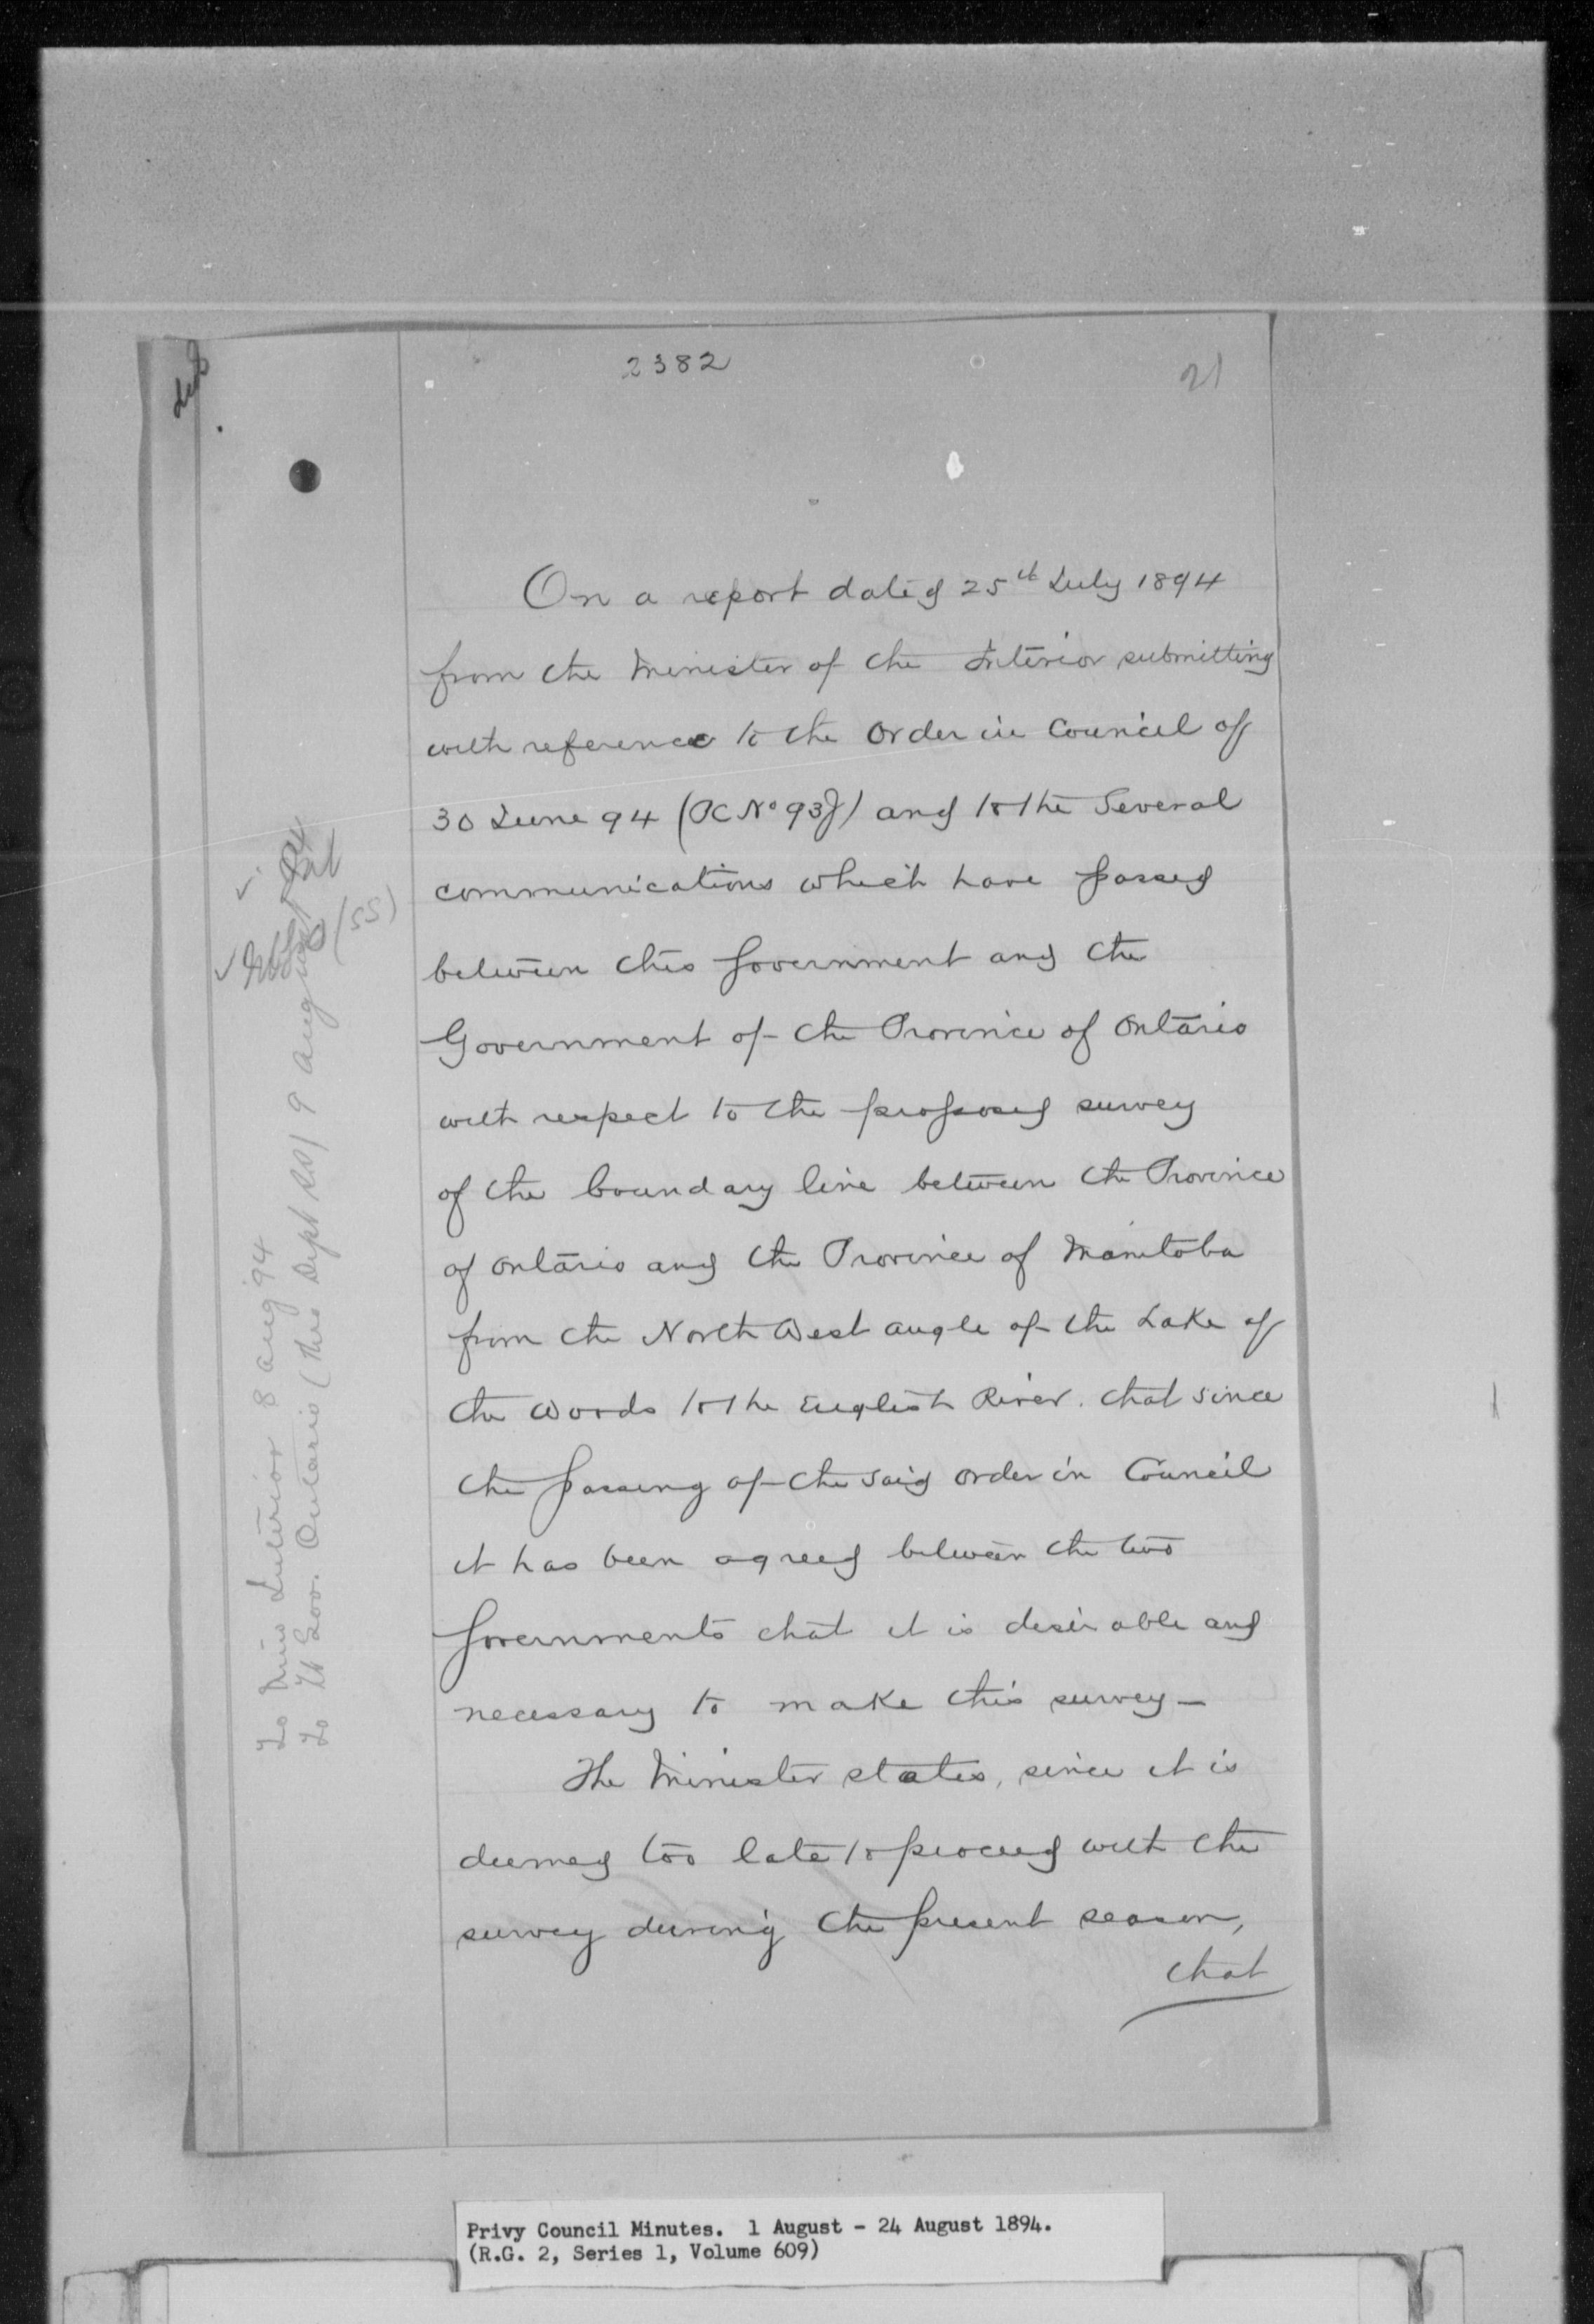 2382
21
On a report dated 25th July 1894
from the Minister of the Interior submitting
with reference to the Order in Council of
30 June 94 (PC No 93J) and to the Several
communications which have passed
between this Government and the
Government of the Province of Ontario
with respect to the proposed survey
of the boundary line between the Province
of Ontario and the Province of Manitoba
from the North West angle of the Lake of
the Woods to the English River. that since
the passing of the said order in Council
it has been agreed between the two
Governments that it is desirable and
necessary to make this survey —
The Minister states, since it is
deemed too late to proceed with the
survey during the present season,
that
To Min Interior 8 Aug '94
To Lt Gov. Ontario (thro Dept SS) 9 Aug
(SS)
Privy Council Minutes. 1 August - 24 August 1894.
(R.G. 2, Series 1, Volume 609)